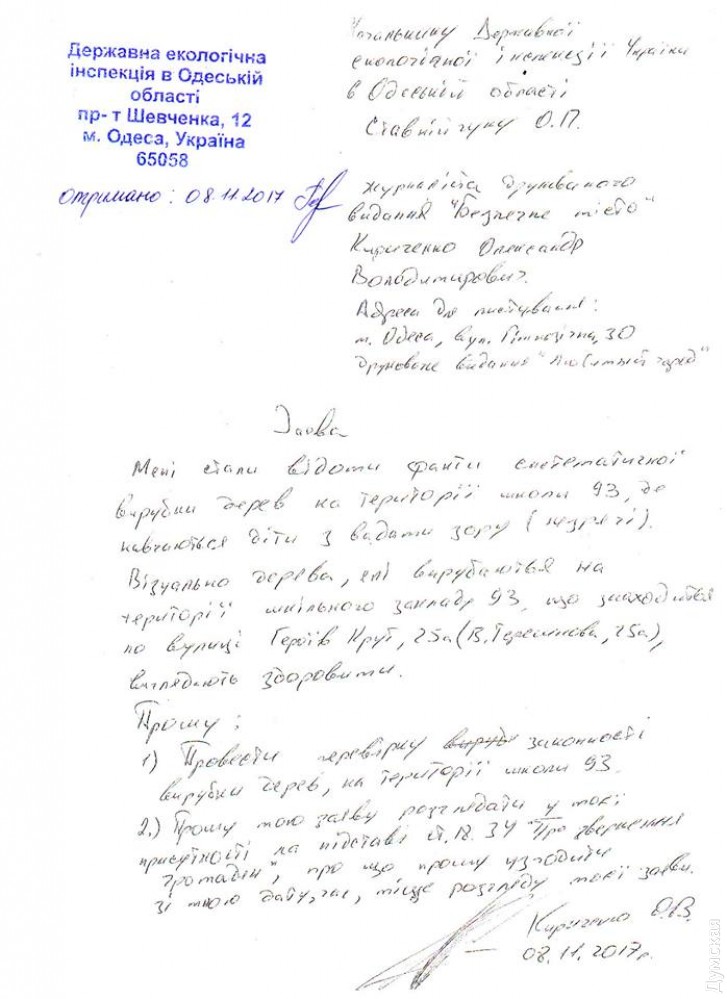 Державна екологічна
інспекція в Одеській
області
пр- т Шевченка, 12
м. Одеса, Україна
65058
отримано: 08.11.2017
Начальнику Державної
екологічної інспекції України
в Одеській області
О.П.
журналіста друкованого
видання "Безпечне місто"
Кириченко Олександр
Володимирович.
Адреса для листування:
м. Одеса, вул. Гімназічна, 30
друковане видання "
Заява
Мені стали відоми факти систематичної
вирубки дерев на території школи 93, де
навчаються діти з вадами зору (незрячі).
Візуально дерева, які вирубаються на
території шкільного закладу 93, що знаходиться
по вулиці Героїв Крут, 25а (В.Терешкова, 25а),
виглядають здоровими.
Прошу:
1) Провести перевірку законності
вирубки дерев, на території школи 93.
2.) Прошу мою заяву розглядати у моєї
присутності на підставі ст. 18. ЗУ "Про звернення
громадян", про що прошу узгодити
зі мною дату, час, місце розгляду моєї заяви.
Кириченко О.В.
08.11.2017г.
Думская